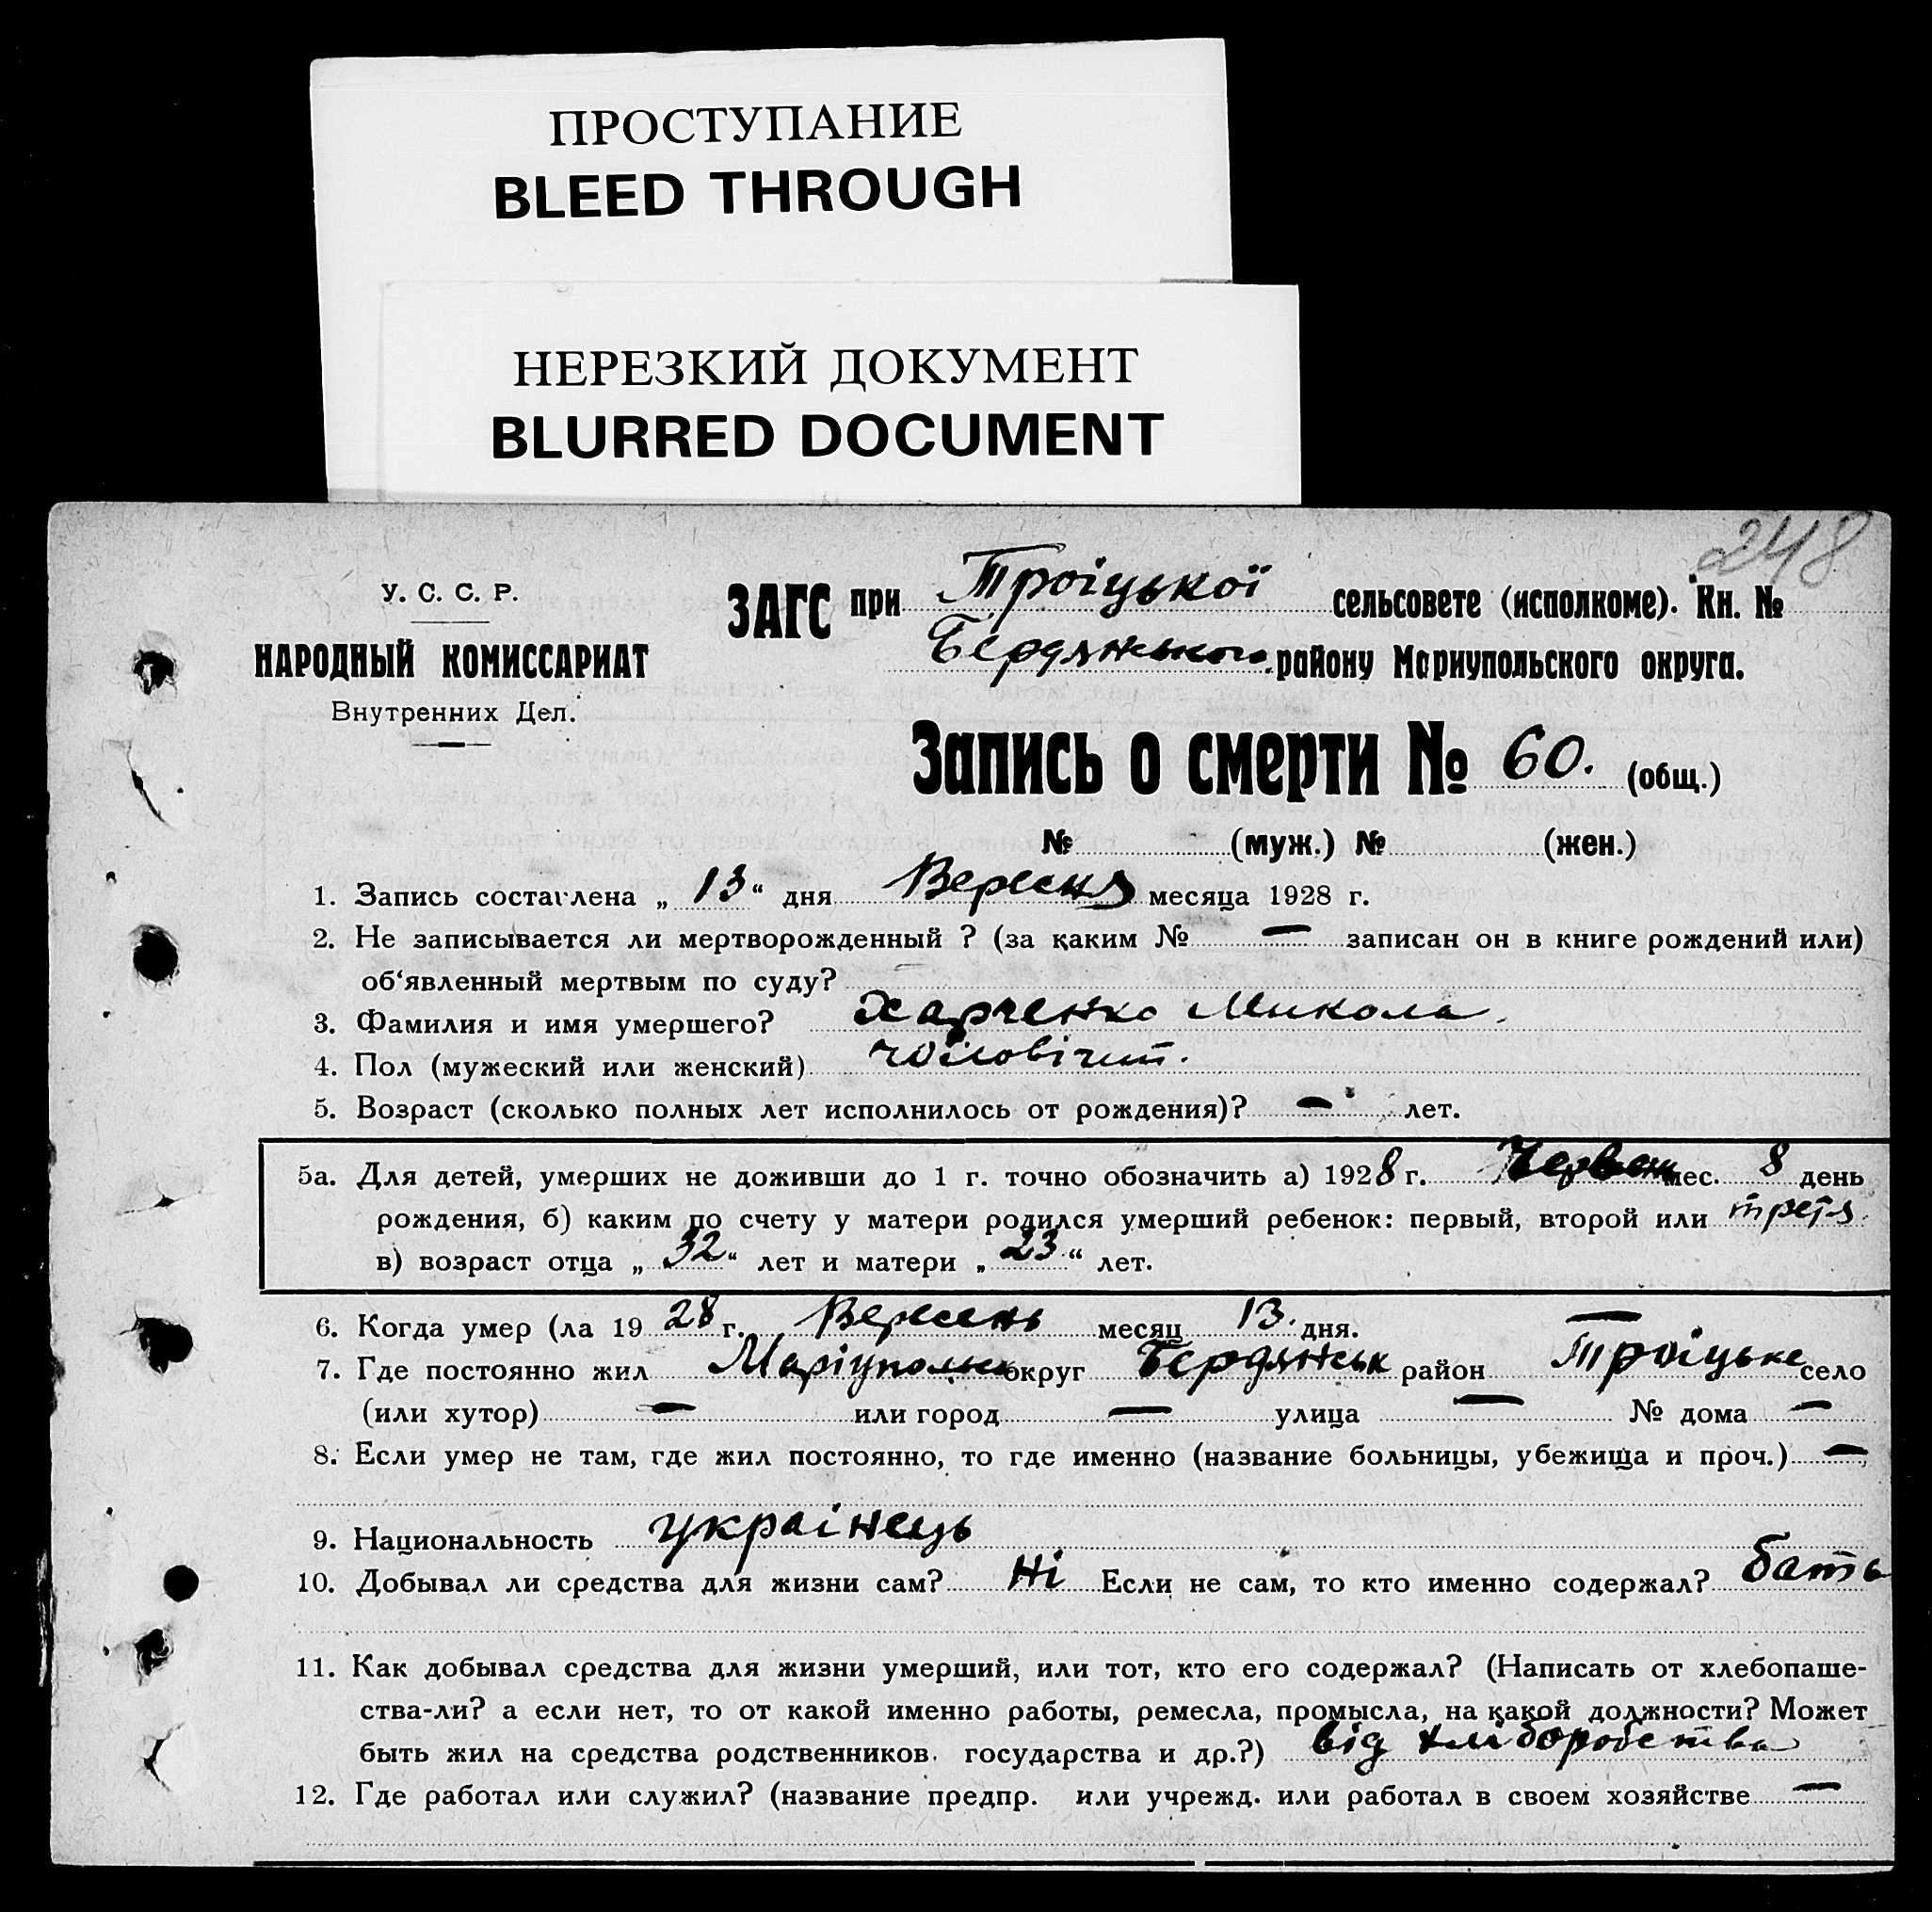 ПРОСТУПАНИЕ
BLEED THROUGH
НЕРЕЗКИЙ ДОКУМЕНТ
BLURRED DOCUMENT
248
У. С. С. Р.
НАРОДНЫЙ КОМИССАРИАТ
Внутренних Дел.
ЗАГС при Троіцької сельсовете (исполкоме). Кн. №
Бердянського району Мариупольского округа.
Запись о смерти № 60. (общ.)
№ (муж.) № (жен.)
1. Запись составлена „ 13 “ дня Вересня месяца 1928 г.
2. Не записывается ли мертворожденный ? (за каким № — записан он в книге рождений или)
об‘явленный мертвым по суду?
3. Фамилия и имя умершего? Харченко Микола.
4. Пол (мужеский или женский) чоловічит.
5. Возраст (сколько полных лет исполнилось от рождения)? — лет.
5а. Для детей, умерших не доживши до 1 г. точно обозначить а) 1928 г. Червень мес. 8 день
рождения, б) каким по счету у матери родился умерший ребенок: первый, второй или третя
в) возраст отца „ 32 “ лет и матери „ 23 “ лет.
6. Когда умер (ла 19 28 г. Вересень месяц 13. дня.
7. Где постоянно жил Маріупольск округ Бердянськ район Троіцьке село
(или хутор) — или город — улица — № дома —
8. Если умер не там, где жил постоянно, то где именно (название больницы, убежища и проч.) —
9. Национальность українець
10. Добывал ли средства для жизни сам? Ні Если не сам, то кто именно содержал? бать
11. Как добывал средства для жизни умерший, или тот, кто его содержал? (Написать от хлебопаше-
ства-ли? а если нет, то от какой именно работы, ремесла, промысла, на какой должности? Может
быть жил на средства родственников, государства и др.?) від хліборобства
12. Где работал или служил? (название предпр. или учрежд. или работал в своем хозяйстве —